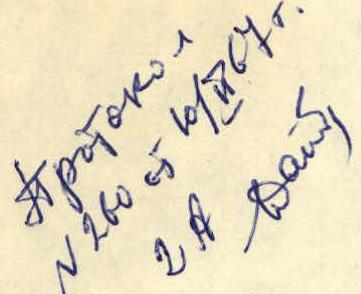 Протокол
N 260 от 10/II 67 г.
2 А